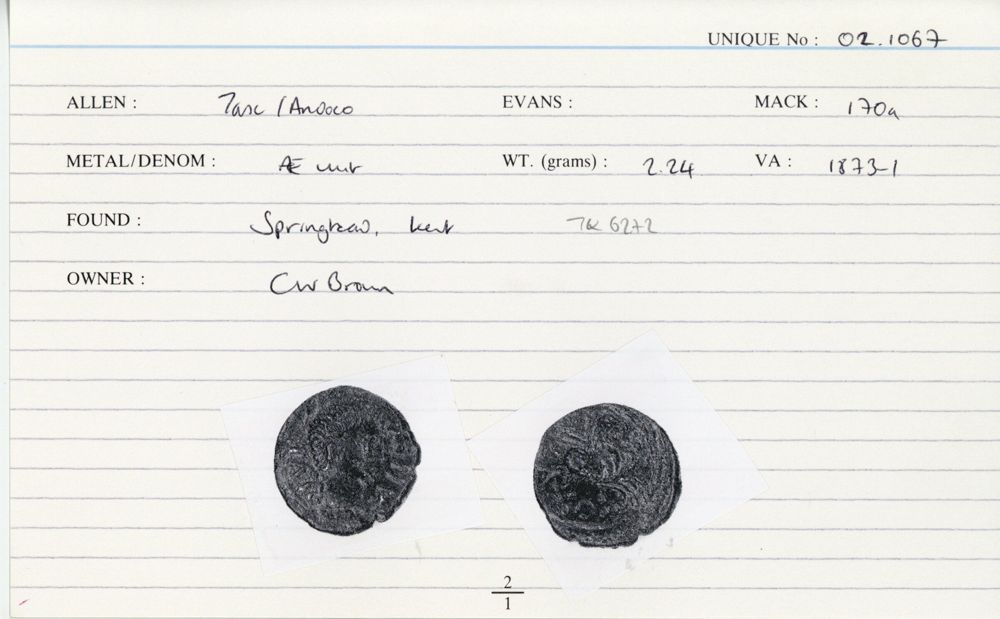 UNIQUE No : 02.1067
ALLEN : Tasc / Andoco EVANS : MACK : 170a
METAL/DENOM : Æ unit WT. (grams) : 2.24 VA : 1873-1
FOUND : Springhead, Kent TQ 6272
OWNER : CW Brown
2
1